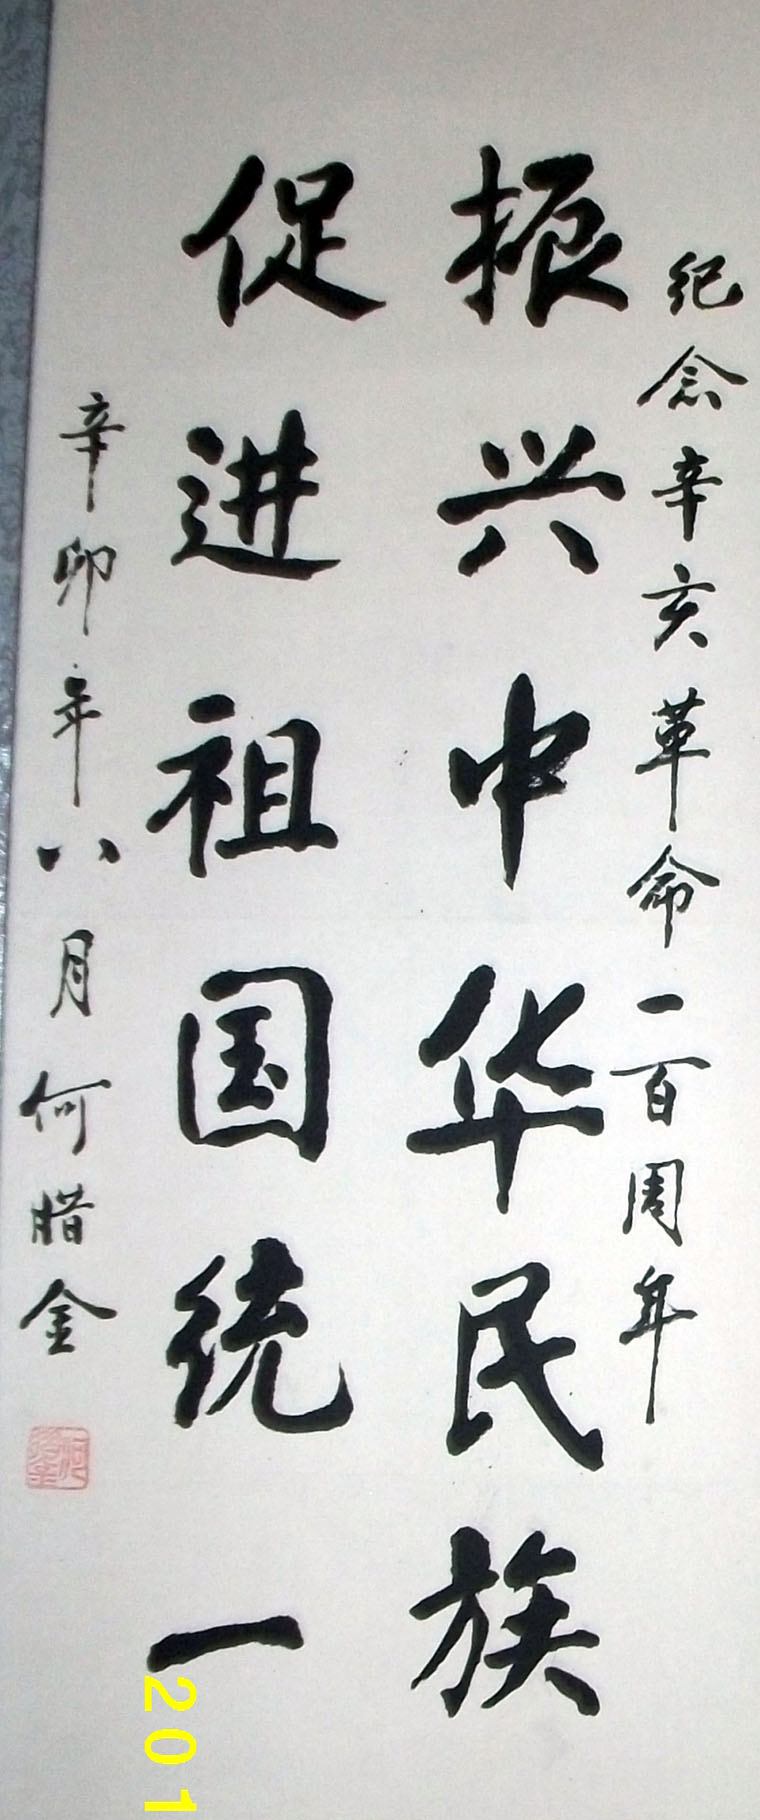 纪念辛亥革命一百周年
振兴中华民族
促进祖国统一
辛卯年八月何腊金
201